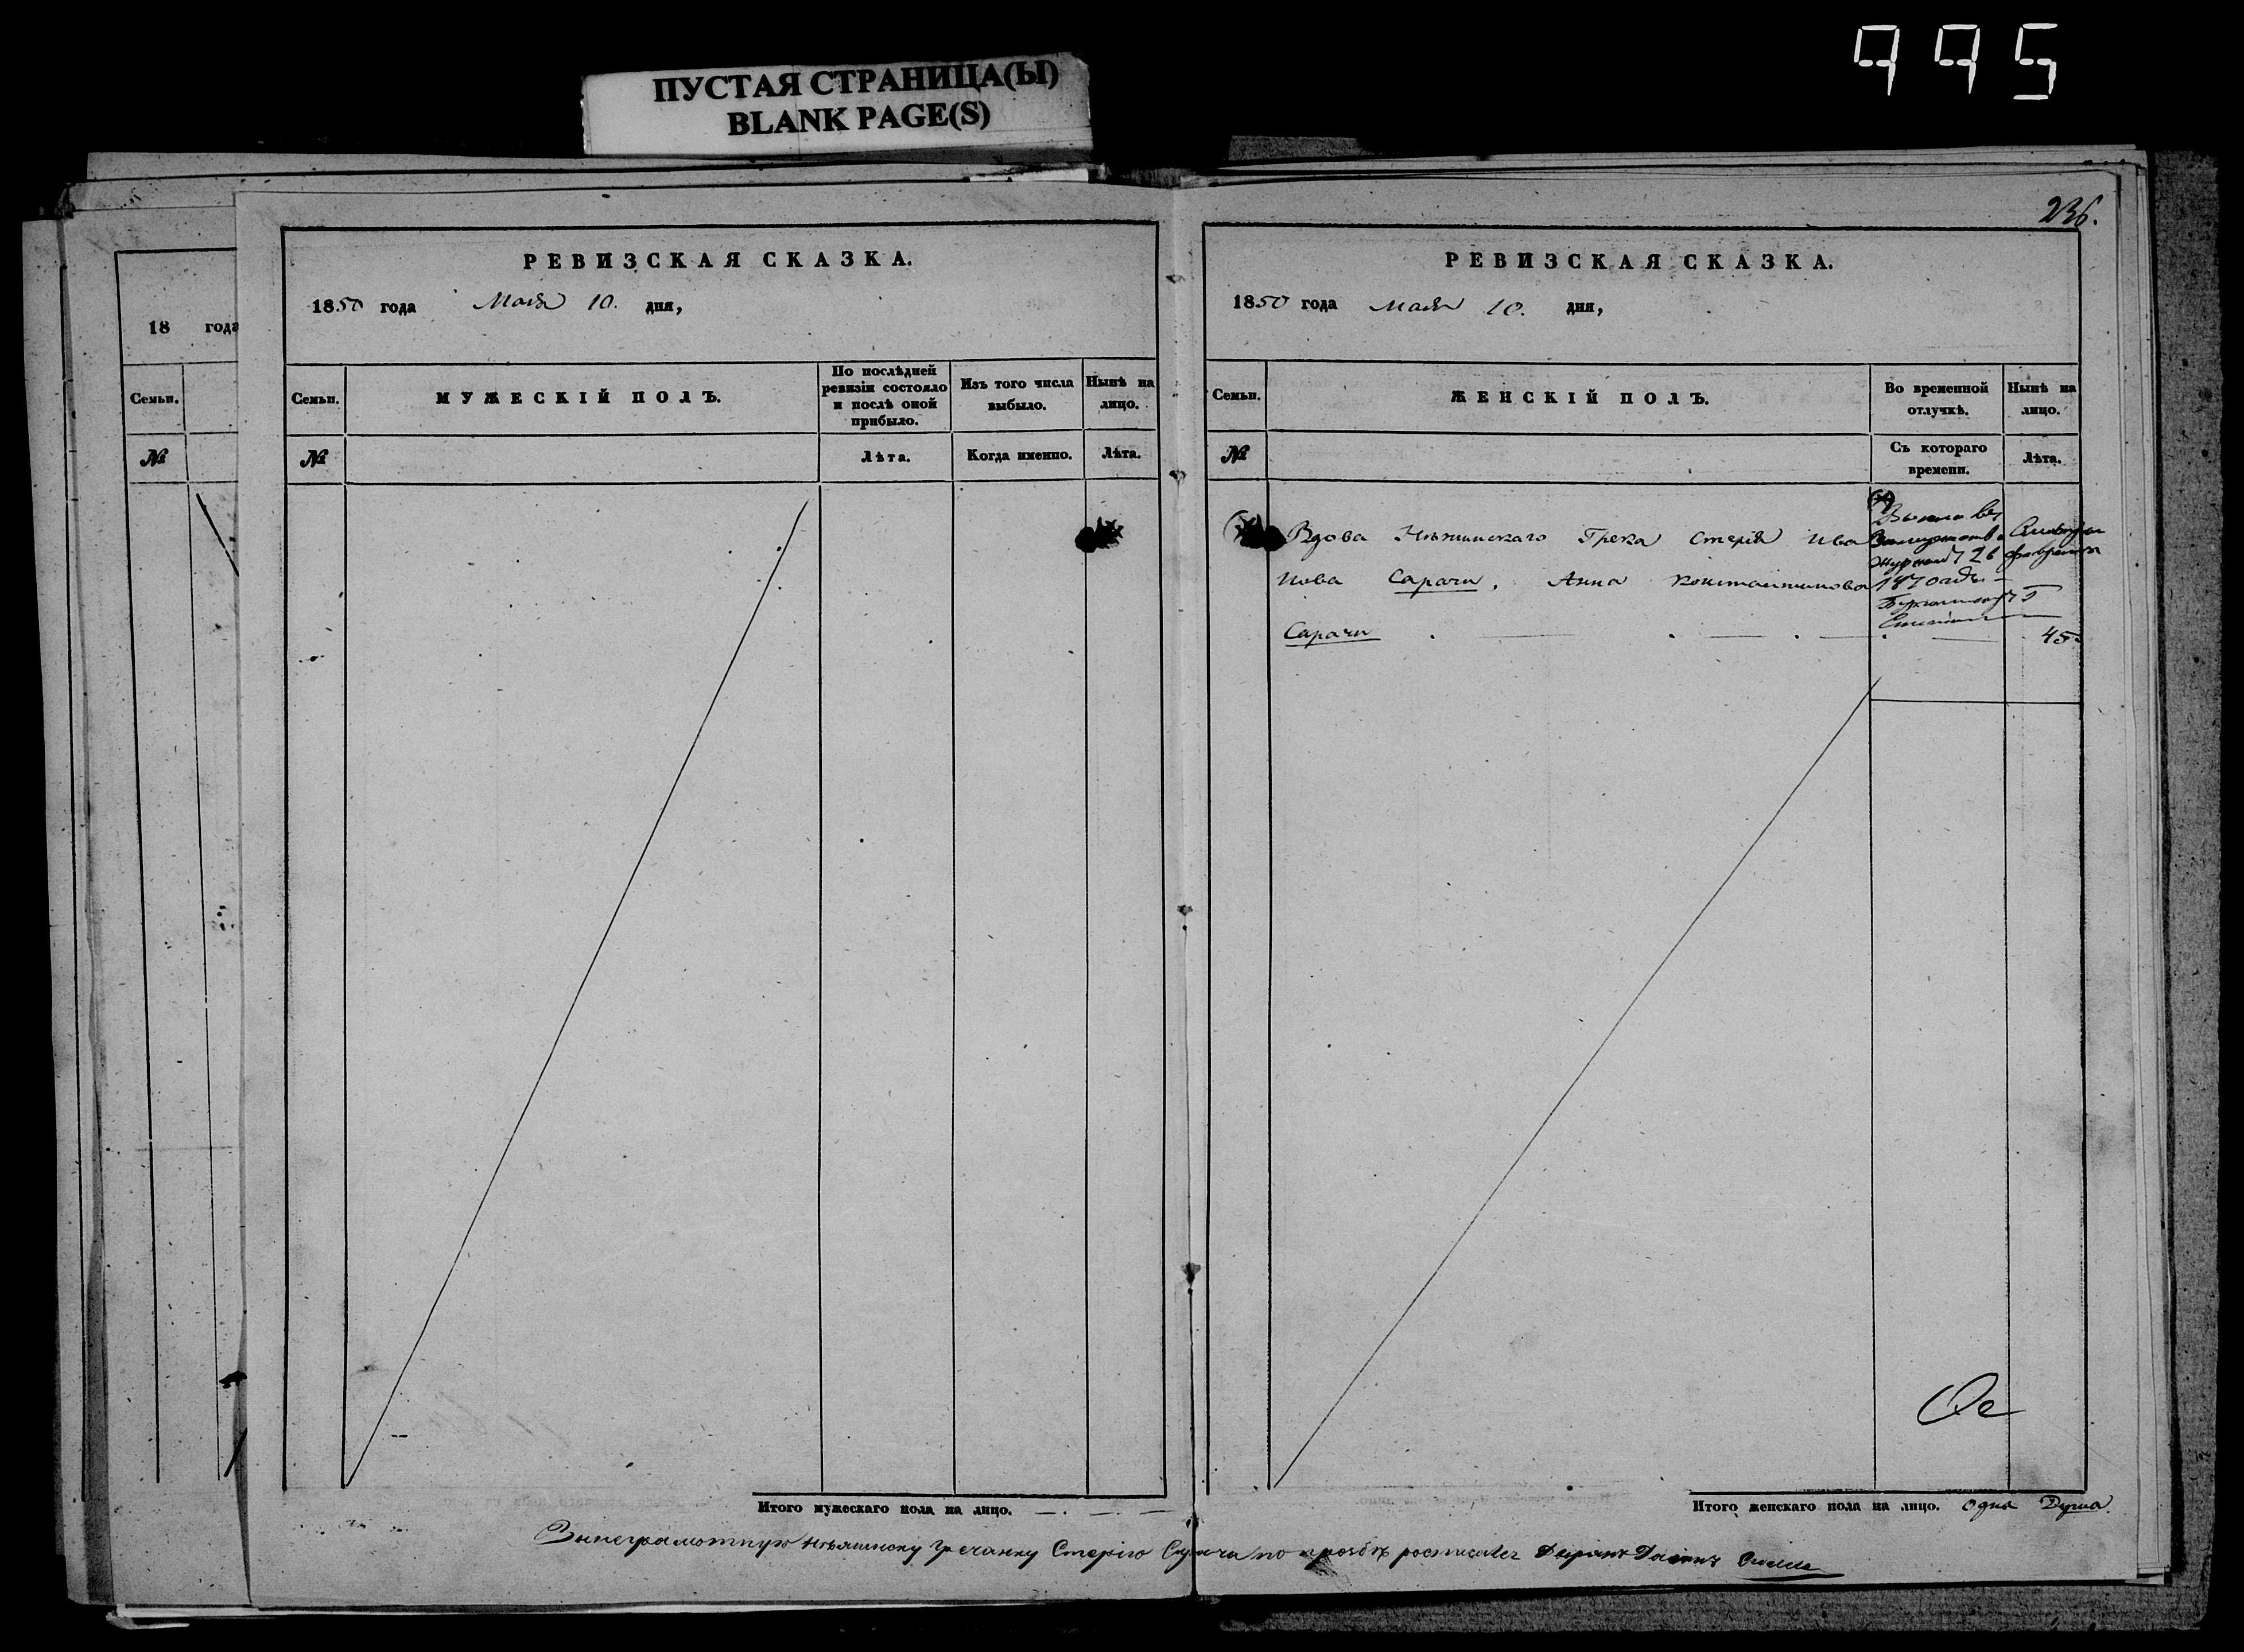 995
ПУСТАЯ СТРАНИЦА(Ы)
BLANK PAGE(S)
236.
18 года
Семьи.
№
РЕВИЗСКАЯ СКАЗКА.
1850 года Мая 10. дня,
Семьи.
МУЖЕСКІЙ ПОЛЪ.
По послѣдней ревизіи состояло и послѣ оной прибыло.
Изъ того числа выбыло.
Нынѣ на лицо.
№
Лѣта.
Когда именно.
Лѣта.
Итого мужескаго пола на лицо.
РЕВИЗСКАЯ СКАЗКА.
1850 года Мая 10. дня,
Семьи.
ЖЕНСКІЙ ПОЛЪ.
Во временной отлучкѣ.
Нынѣ на лицо.
№
Съ котораго времени.
Лѣта.
Вдова Нѣжинскаго Грека Стерія Ива
нова Сарачи, Анна Константинова
Сарачи 45
1870
Итого женскаго пола на лицо. одна Душа.
гречанку Стерію Сарачи по прозбѣ росписался